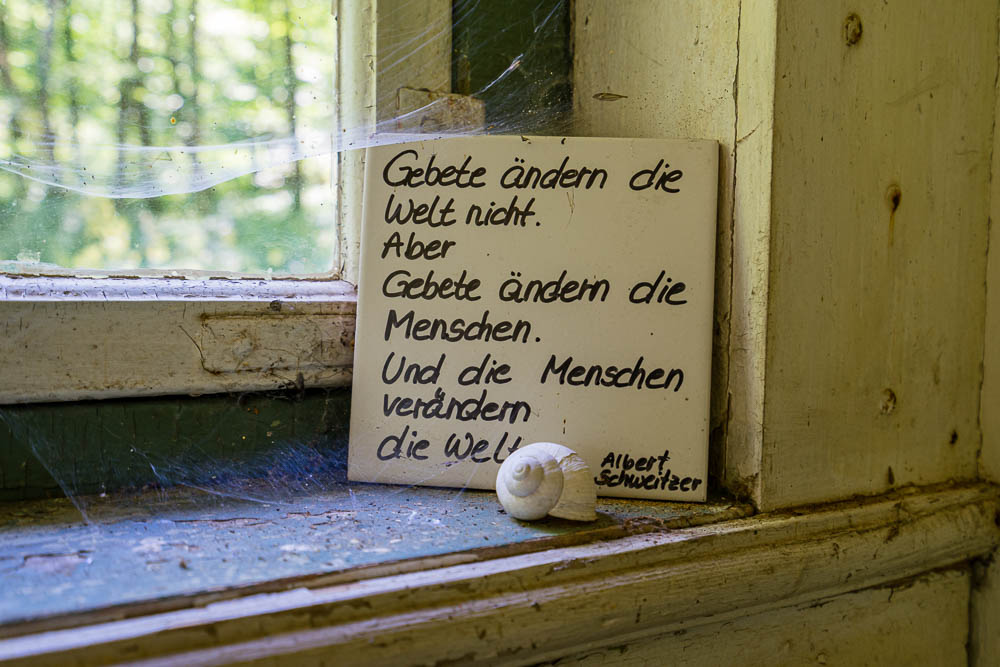 Gebete ändern die
Welt nicht.
Aber
Gebete ändern die
Menschen.
Und die Menschen
verändern
die Welt
Albert
Schweitzer